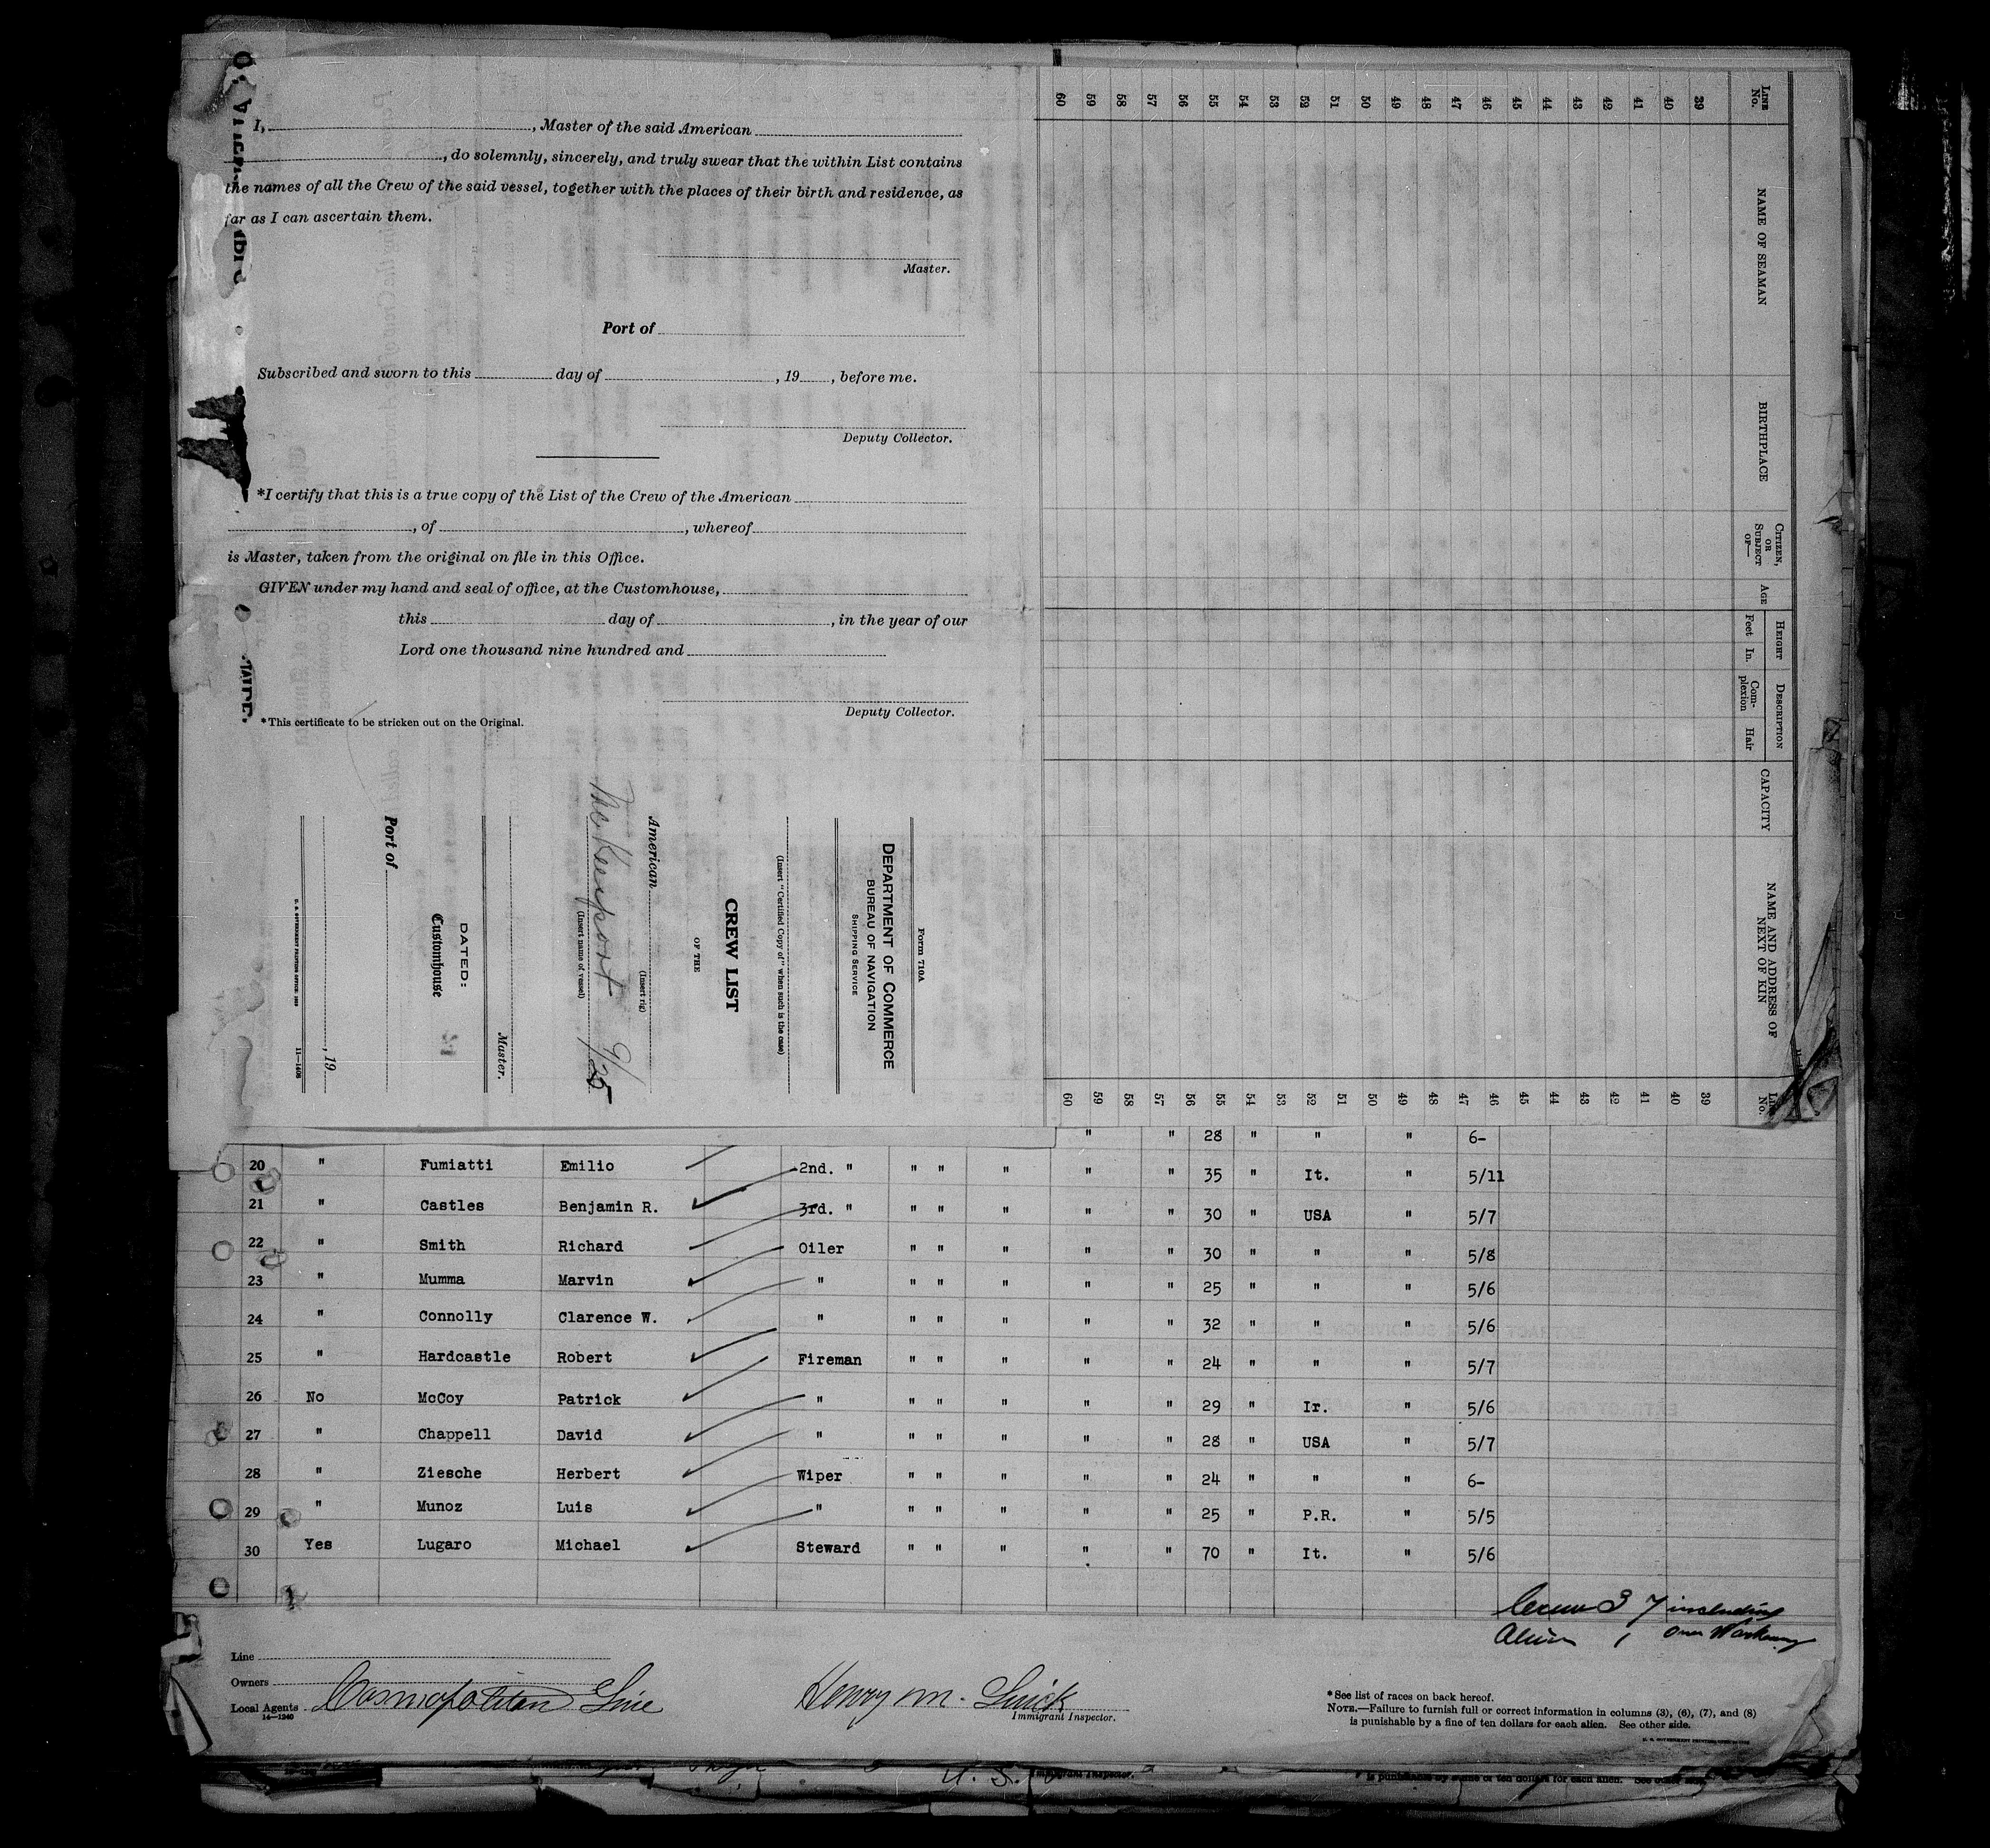 I, , Master of the said American
, do solemnly, sincerely, and truly swear that the within List contains
the names of all the Crew of the said vessel, together with the places of their birth and residence, as
far as I can ascertain them.
Master.
Port of
Subscribed and sworn to this day of , 19 , before me.
Deputy Collector.
*I certify that this is a true copy of the List of the Crew of the American
, of , whereof
is Master, taken from the original on file in this Office.
GIVEN under my hand and seal of office, at the Customhouse,
this day of , in the year of our
Lord one thousand nine hundred and
Deputy Collector.
*This certificate to be stricken out on the Original.
Form 710A
DEPARTMENT OF COMMERCE
BUREAU OF NAVIGATION
SHIPPING SERVICE
(Insert "Certified Copy of" when such is the case)
CREW LIST
OF THE
American
(Insert rig)
McKeesport 9/25
(Insert name of vessel)
Master.
DATED:
Customhouse
Port of
, 19
11—1408
LINE No. NAME OF SEAMAN BIRTHPLACE CITIZEN, OR SUBJECT OF— AGE HEIGHT Feet In. DESCRIPTION Complexion Hair CAPACITY NAME AND ADDRESS OF NEXT OF KIN
39 39
40 40
41 41
42 42
43 43
44 44
45 45
46 46
47 47
48 48
49 49
50 50
51 51
52 52
53 53
54 54
55 55
56 56
57 57
58 58
59 59
60 60
" " 28 " " " 6-
20 " Fumiatti Emilio 2nd. " " " " " " 35 " It. " 5/11
21 " Castles Benjamin R. 3rd. " " " " " " 30 " USA " 5/7
22 " Smith Richard Oiler " " " " " 30 " " " 5/8
23 " Mumma Marvin " " " " " " 25 " " " 5/6
24 " Connolly Clarence W. " " " " " " 32 " " " 5/6
25 " Hardcastle Robert Fireman " " " " " 24 " " " 5/7
26 No McCoy Patrick " " " " " " 29 " Ir. " 5/6
27 " Chappell David " " " " " " 28 " USA " 5/7
28 " Ziesche Herbert Wiper " " " " " 24 " " " 6-
29 " Munoz Luis " " " " " " 25 " P.R. " 5/5
30 Yes Lugaro Michael Steward " " " " " 70 " It. " 5/6
Crew 37 including
Alien 1 one Workaway
Line
Owners
Local Agents Cosmopolitan Line
14—1240
Henry M.
Immigrant Inspector.
*See list of races on back hereof.
NOTE.—Failure to furnish full or correct information in columns (3), (6), (7), and (8)
is punishable by a fine of ten dollars for each alien. See other side.
U. S.
Immigrant Inspector.
is punishable by a fine of ten dollars for each alien. See other side.